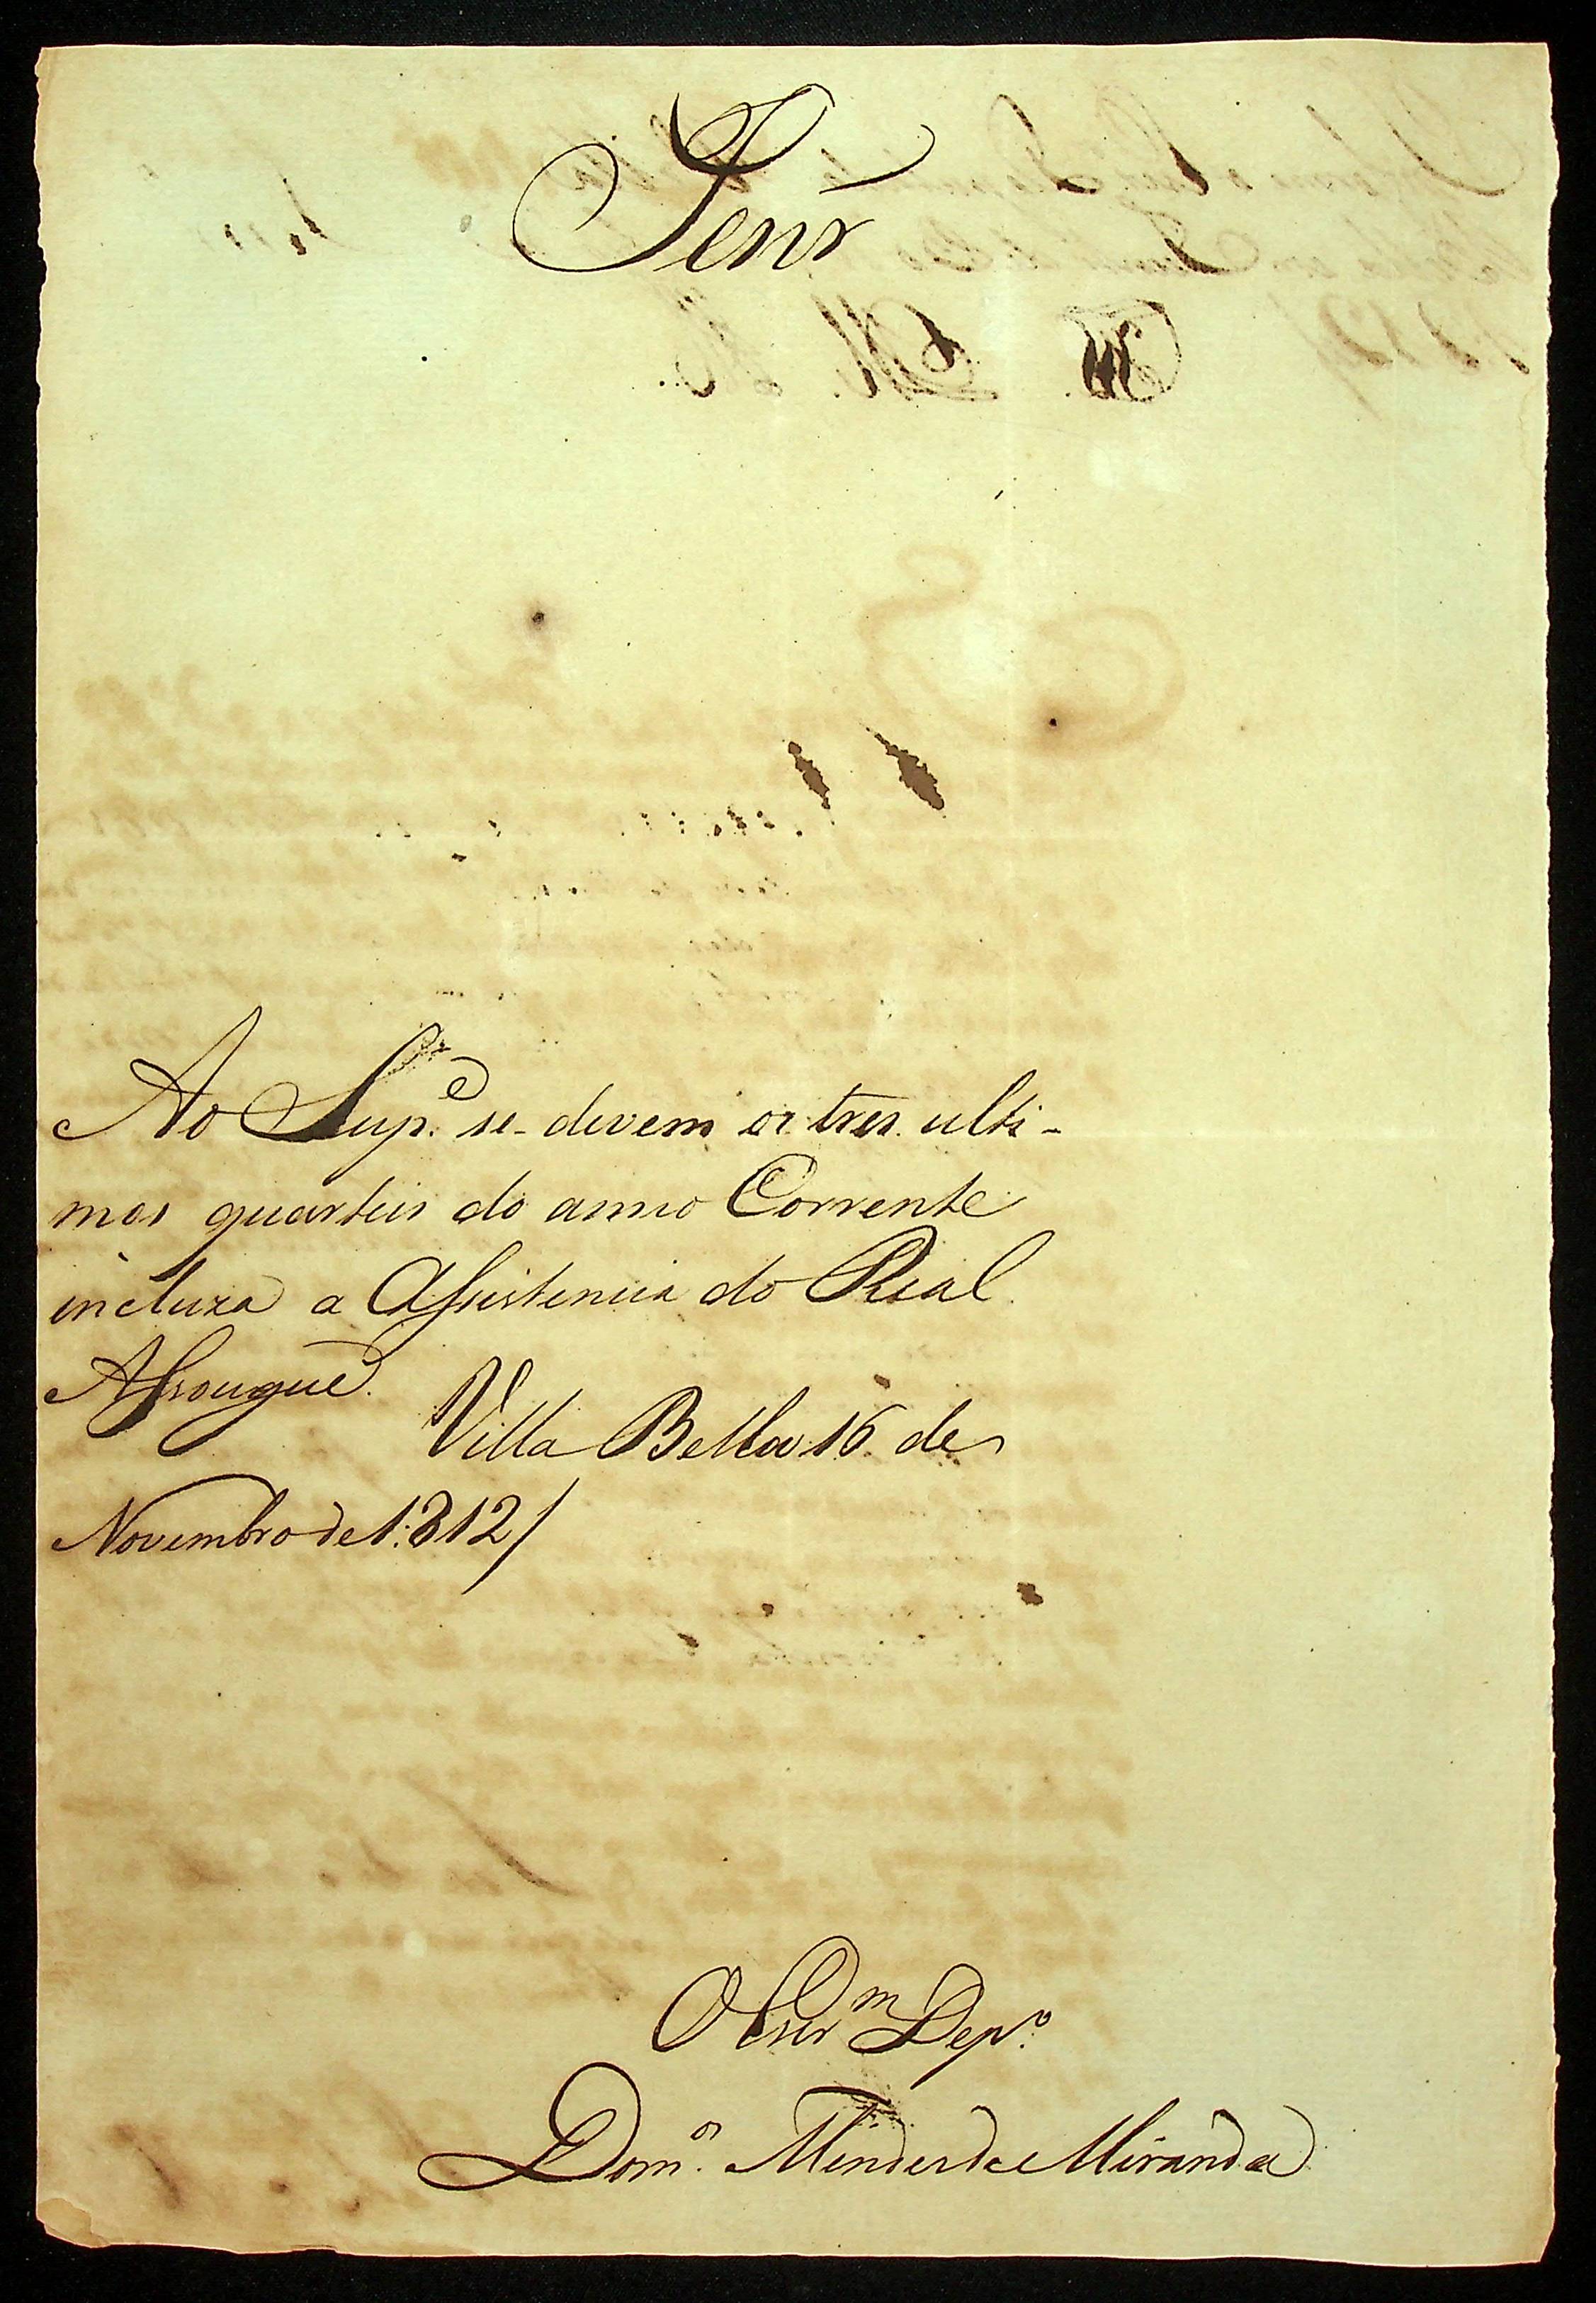 Senr
Ao Sup.e se devem os tres ulti-
mos quarteis do anno Corrente
incluza a Assistencia do Real
Assougue.
Villa Bella 16 de
Novembro de 1812/
O Escrm Depo.
Domos. Mendes de Miranda